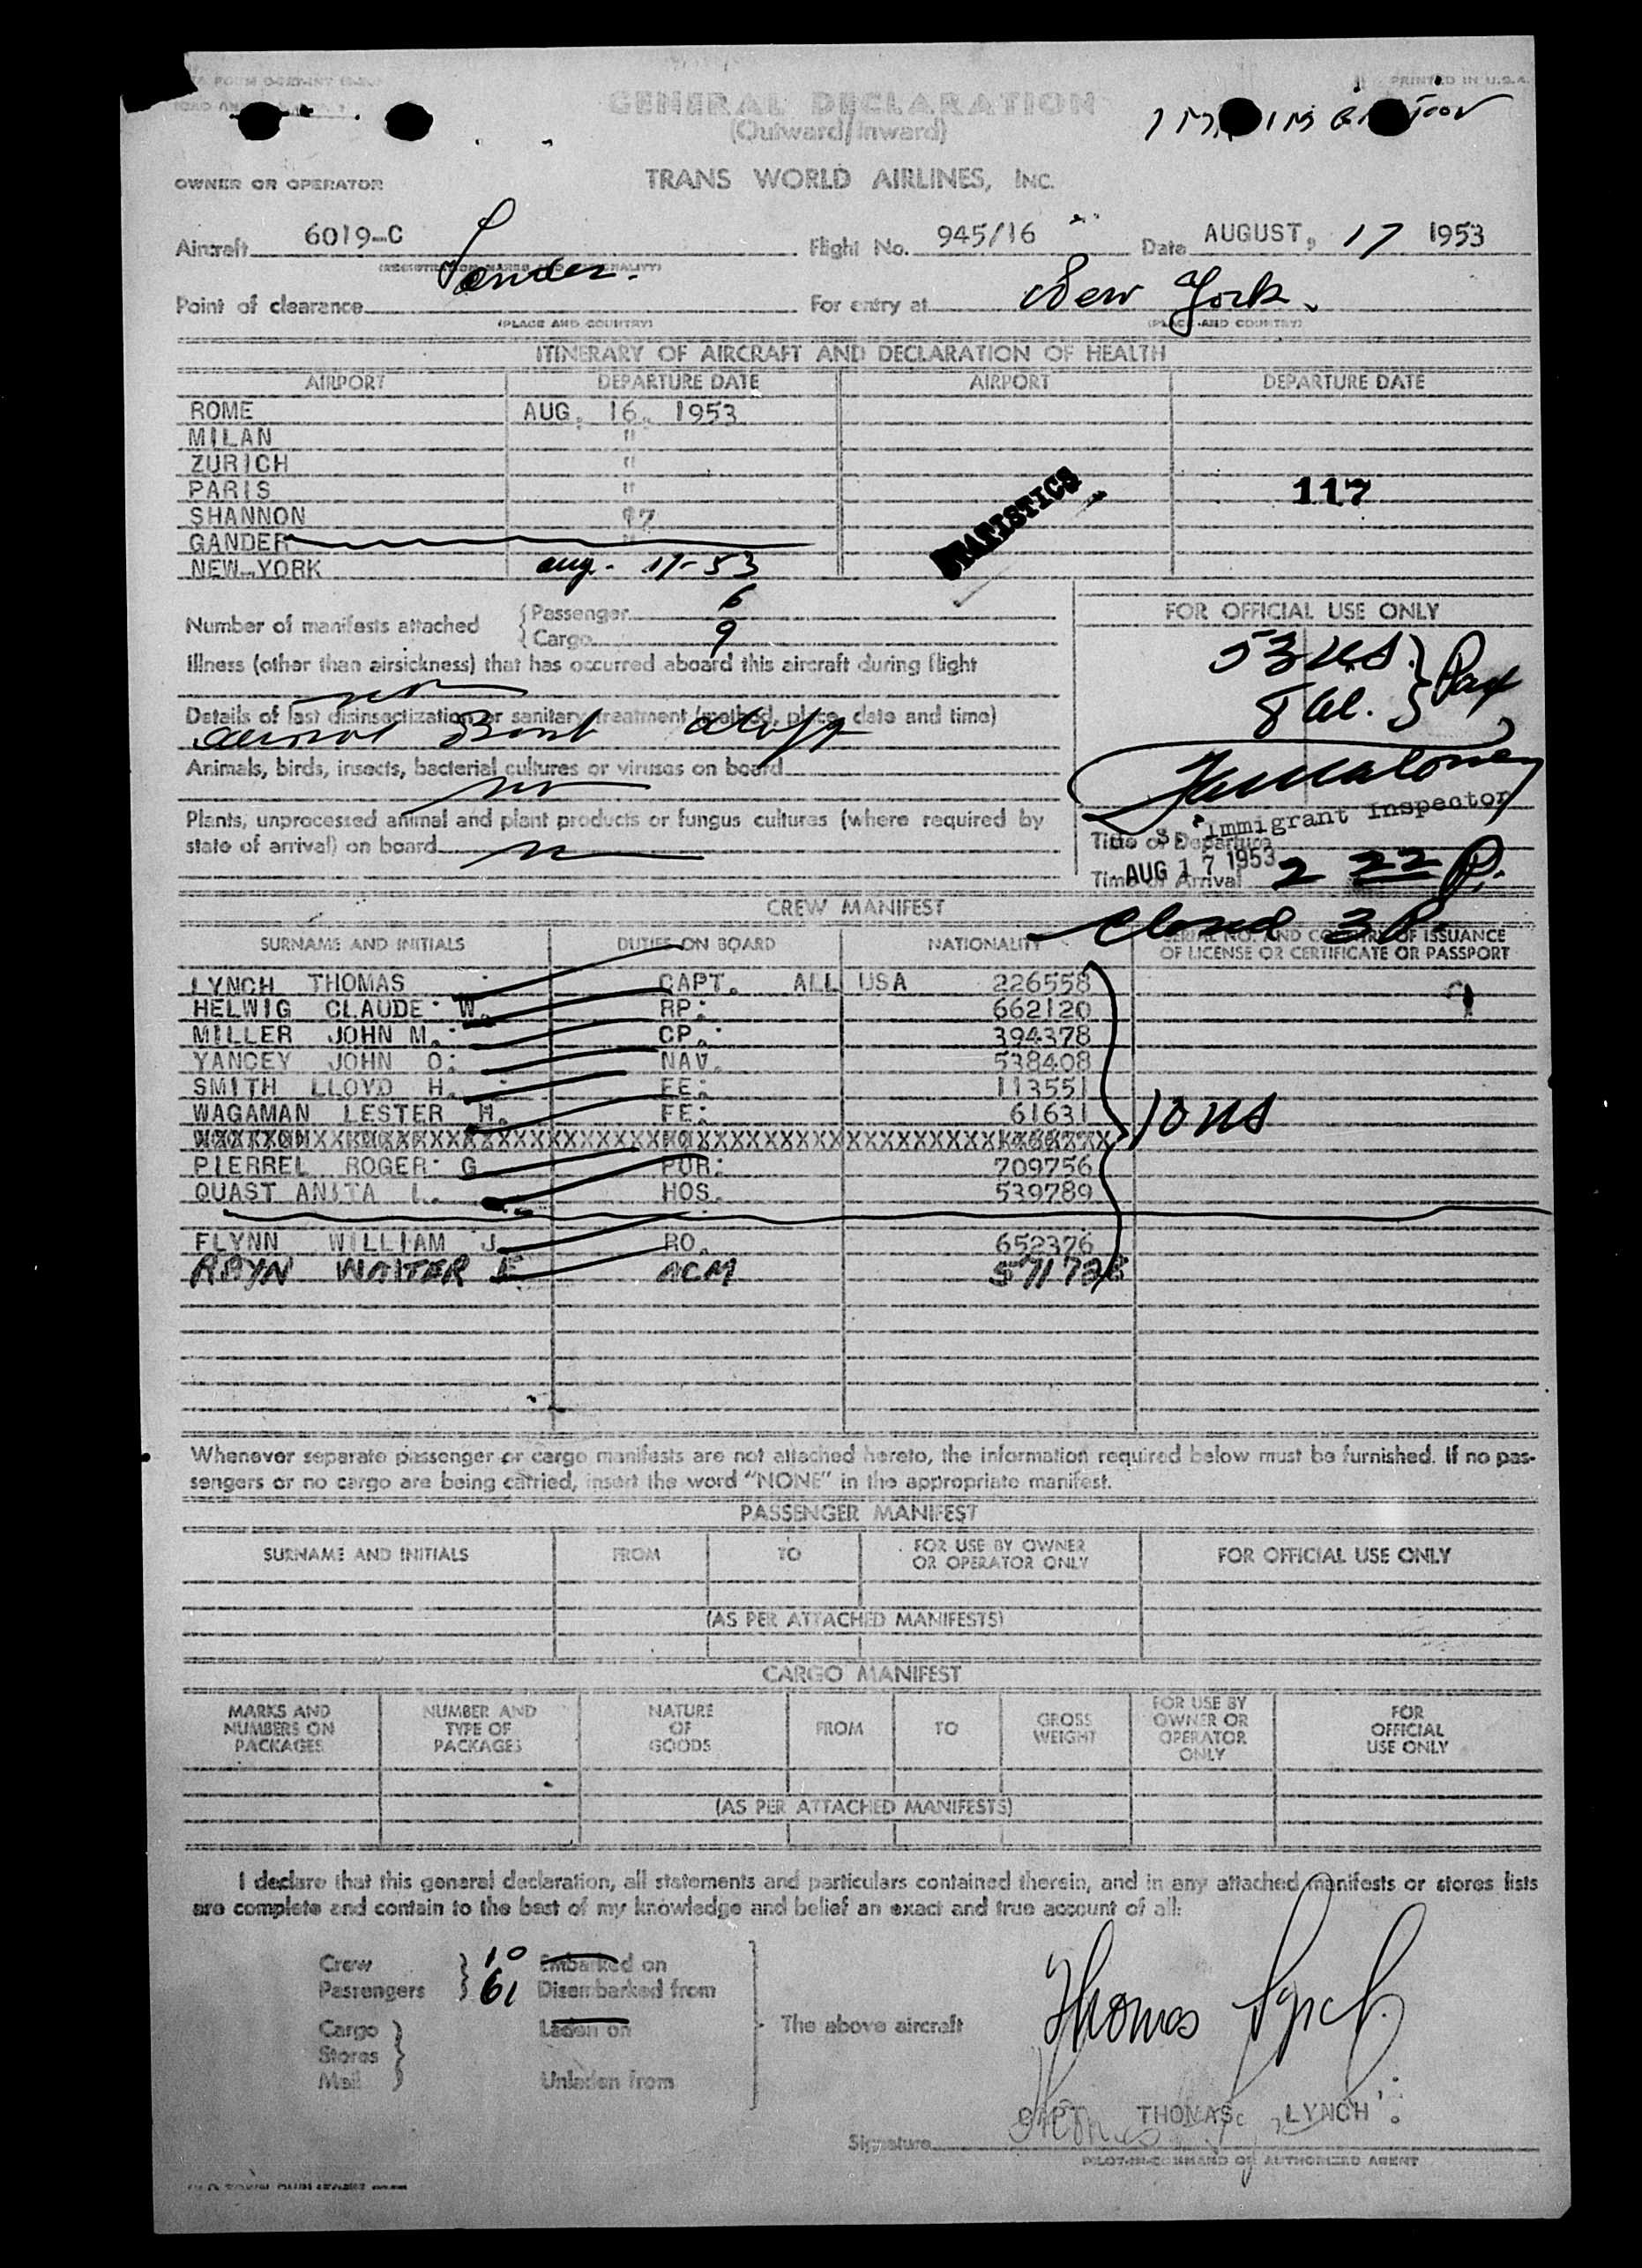 PRINTED IN U.S.A.
GENERAL DECLARATION
(Outward/Inward)
OWNER OR OPERATOR TRANS WORLD AIRLINES, INC.
Aircraft 6019-C Flight No. 945/16 Date AUGUST, 17 1953
(REGISTRATION MARKS AND NATIONALITY)
Point of clearance For entry at New York
(PLACE AND COUNTRY) (PLACE AND COUNTRY)
ITINERARY OF AIRCRAFT AND DECLARATION OF HEALTH
AIRPORT DEPARTURE DATE AIRPORT DEPARTURE DATE
ROME AUG. 16. 1953
MILAN "
ZURICH "
PARIS " 117
SHANNON 17
STATISTICS
GANDER "
NEW YORK aug. 17-53
Number of manifests attached Passenger 6
Cargo 9
FOR OFFICIAL USE ONLY
53 US. } Pax
8 al.
Illness (other than airsickness) that has occurred aboard this aircraft during flight
Details of last disinsectization or sanitary treatment (method, place, date and time)
aerosol Bomb
Animals, birds, insects, bacterial cultures or viruses on board
Plants, unprocessed animal and plant products or fungus cultures (where required by
state of arrival) on board
Immigrant Inspector
Time of Departure
Time of Arrival AUG 17 1953 2 22 P.
closed 3 P.
CREW MANIFEST
SURNAME AND INITIALS DUTIES ON BOARD NATIONALITY SERIAL NO. AND COUNTRY OF ISSUANCE
OF LICENSE OR CERTIFICATE OR PASSPORT
LYNCH THOMAS CAPT. ALL USA 226558
HELWIG CLAUDE W. RP. 662120
MILLER JOHN M. CP. 394378
YANCEY JOHN O. NAV. 538408
SMITH LLOYD H. FE. 113551
WAGAMAN LESTER H. FE. 61631
10 US
PIERREL ROGER G PUR. 709756
QUAST ANITA L. HOS. 539789
FLYNN WILLIAM J. RO. 652376
WALTER E ACM
Whenever separate passenger or cargo manifests are not attached hereto, the information required below must be furnished. If no pas-
sengers or no cargo are being carried, insert the word "NONE" in the appropriate manifest.
PASSENGER MANIFEST
SURNAME AND INITIALS FROM TO FOR USE BY OWNER OR OPERATOR ONLY FOR OFFICIAL USE ONLY
(AS PER ATTACHED MANIFESTS)
CARGO MANIFEST
MARKS AND NUMBERS ON PACKAGES NUMBER AND TYPE OF PACKAGES NATURE OF GOODS FROM TO GROSS WEIGHT FOR USE BY OWNER OR OPERATOR ONLY FOR OFFICIAL USE ONLY
(AS PER ATTACHED MANIFESTS)
I declare that this general declaration, all statements and particulars contained therein, and in any attached manifests or stores lists
are complete and contain to the best of my knowledge and belief an exact and true account of all:
Crew 10 Embarked on
Passengers 61 Disembarked from
Cargo Laden on The above aircraft
Stores
Mail Unladen from
Thomas Lynch
CAPT. THOMAS LYNCH
Signature
PILOT-IN-COMMAND OR AUTHORIZED AGENT